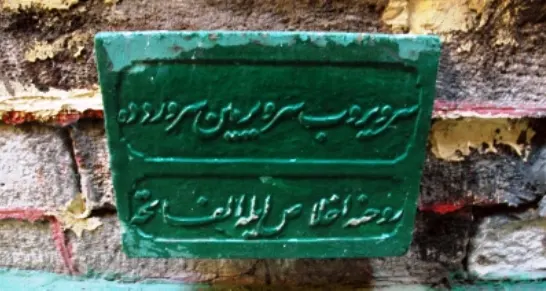 سر ويروب سر ويرمين سرور دده
روحنه اخلاص ايله الفاتحه